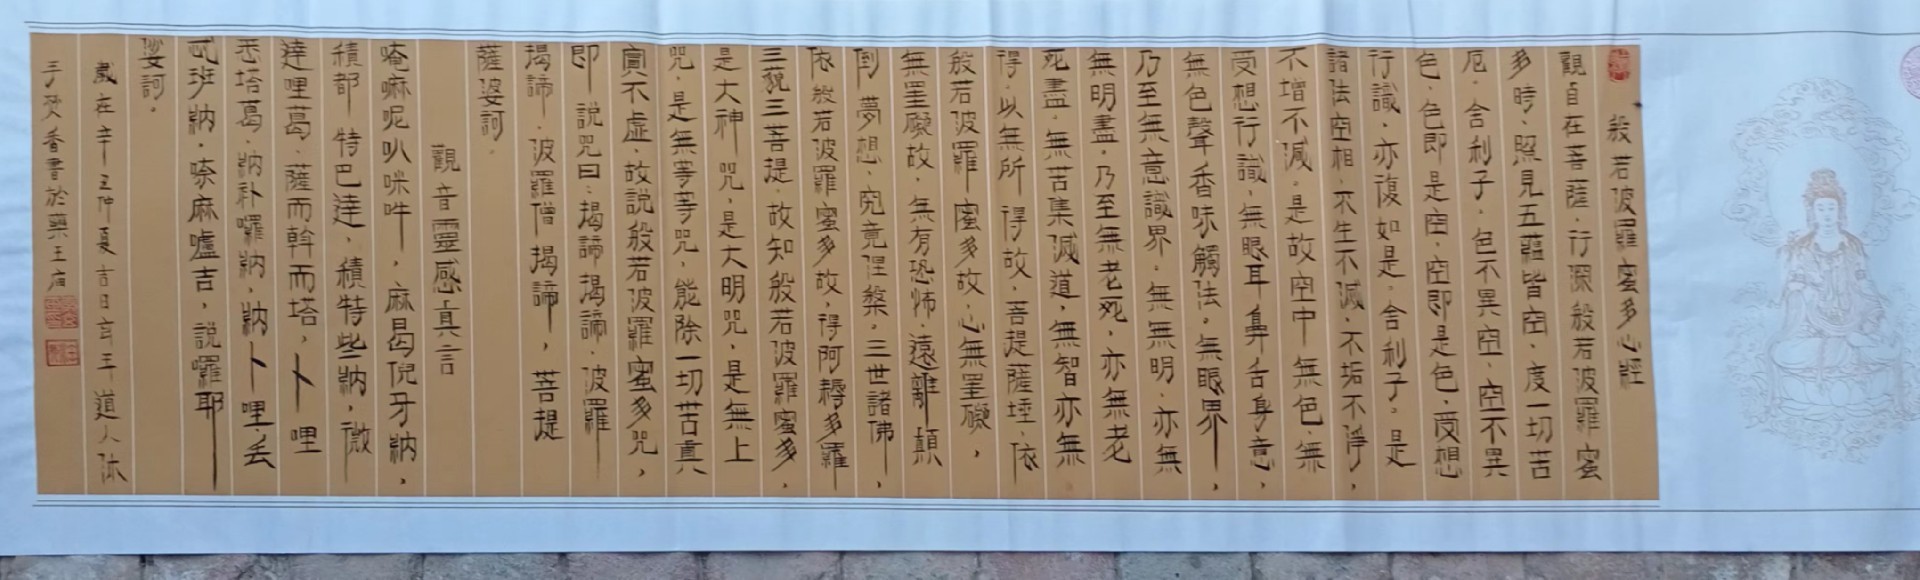 般若波羅蜜多心經
觀自在菩薩，行深般若波羅蜜
多時，照見五蘊皆空，度一切苦
厄，舍利子，色不異空，空不異
色，色即是空，空即是色，受想
行識，亦復如是。舍利子。是
諸法空相，不生不滅，不垢不淨，
不增不減。是故空中無色，無
受想行識，無眼耳鼻舌身意，
無色聲香味觸法。無眼界，
乃至無意識界，無無明，亦無
無明盡，乃至無老死，亦無老
死盡，無苦集滅道，無智亦無
得，以無所得故，菩提薩埵，依
般若波羅蜜多故，心無罣礙，
無罣礙故，無有恐怖，遠離顛
倒夢想，究竟涅槃。三世諸佛，
依般若波羅蜜多故，得阿耨多羅
三藐三菩提，故知般若波羅蜜多，
是大神咒，是大明咒，是無上
咒，是無等等咒，能除一切苦真
實不虛，故說般若波羅蜜多咒，
即說咒曰：揭諦揭諦，波羅
揭諦，波羅僧揭諦，菩提
薩婆訶。
觀音靈感真言
唵嘛呢叭咪吽，麻曷倪牙納，
積都特巴達，積特些納，微
達哩葛，薩而斡而塔，卜哩
悉塔葛，納補囉納，納卜哩，丟
忒班納，嗦麻嚧吉，說囉耶
娑訶。
歲在辛丑仲夏吉日玄玉道人沐
手焚香書於藥王廟